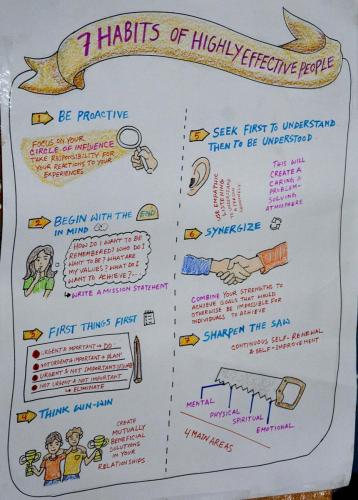 7 HABITS OF HIGHLY EFFECTIVE PEOPLE
1 BE PROACTIVE
FOCUS ON YOUR
CIRCLE OF INFLUENCE
TAKE RESPONSIBILITY FOR
YOUR REACTIONS TO YOUR
EXPERIENCES
2 BEGIN WITH THE END
IN MIND
HOW DO I WANT TO BE
REMEMBERED? WHO DO I
WANT TO BE? WHAT ARE
MY VALUES? WHAT DO I
WANT TO ACHIEVE?...
WRITE A MISSION STATEMENT
3 FIRST THINGS FIRST
URGENT & IMPORTANT → DO
NOT URGENT & IMPORTANT → PLAN
URGENT & NOT IMPORTANT
NOT URGENT & NOT IMPORTANT
→ ELIMINATE
4 THINK WIN-WIN
CREATE
MUTUALLY
BENEFICIAL
SOLUTIONS
IN YOUR
RELATIONSHIPS.
5 SEEK FIRST TO UNDERSTAND
THEN TO BE UNDERSTOOD
USE EMPATHIC
LISTENING
THIS WILL
CREATE A
CARING &
PROBLEM-
SOLVING
ATMOSPHERE
6 SYNERGIZE
COMBINE YOUR STRENGTHS TO
ACHIEVE GOALS THAT WOULD
OTHERWISE BE IMPOSSIBLE FOR
INDIVIDUALS TO ACHIEVE
7 SHARPEN THE SAW
CONTINUOUS SELF-RENEWAL
& SELF-IMPROVEMENT
MENTAL
PHYSICAL
SPIRITUAL
EMOTIONAL
4 MAIN AREAS